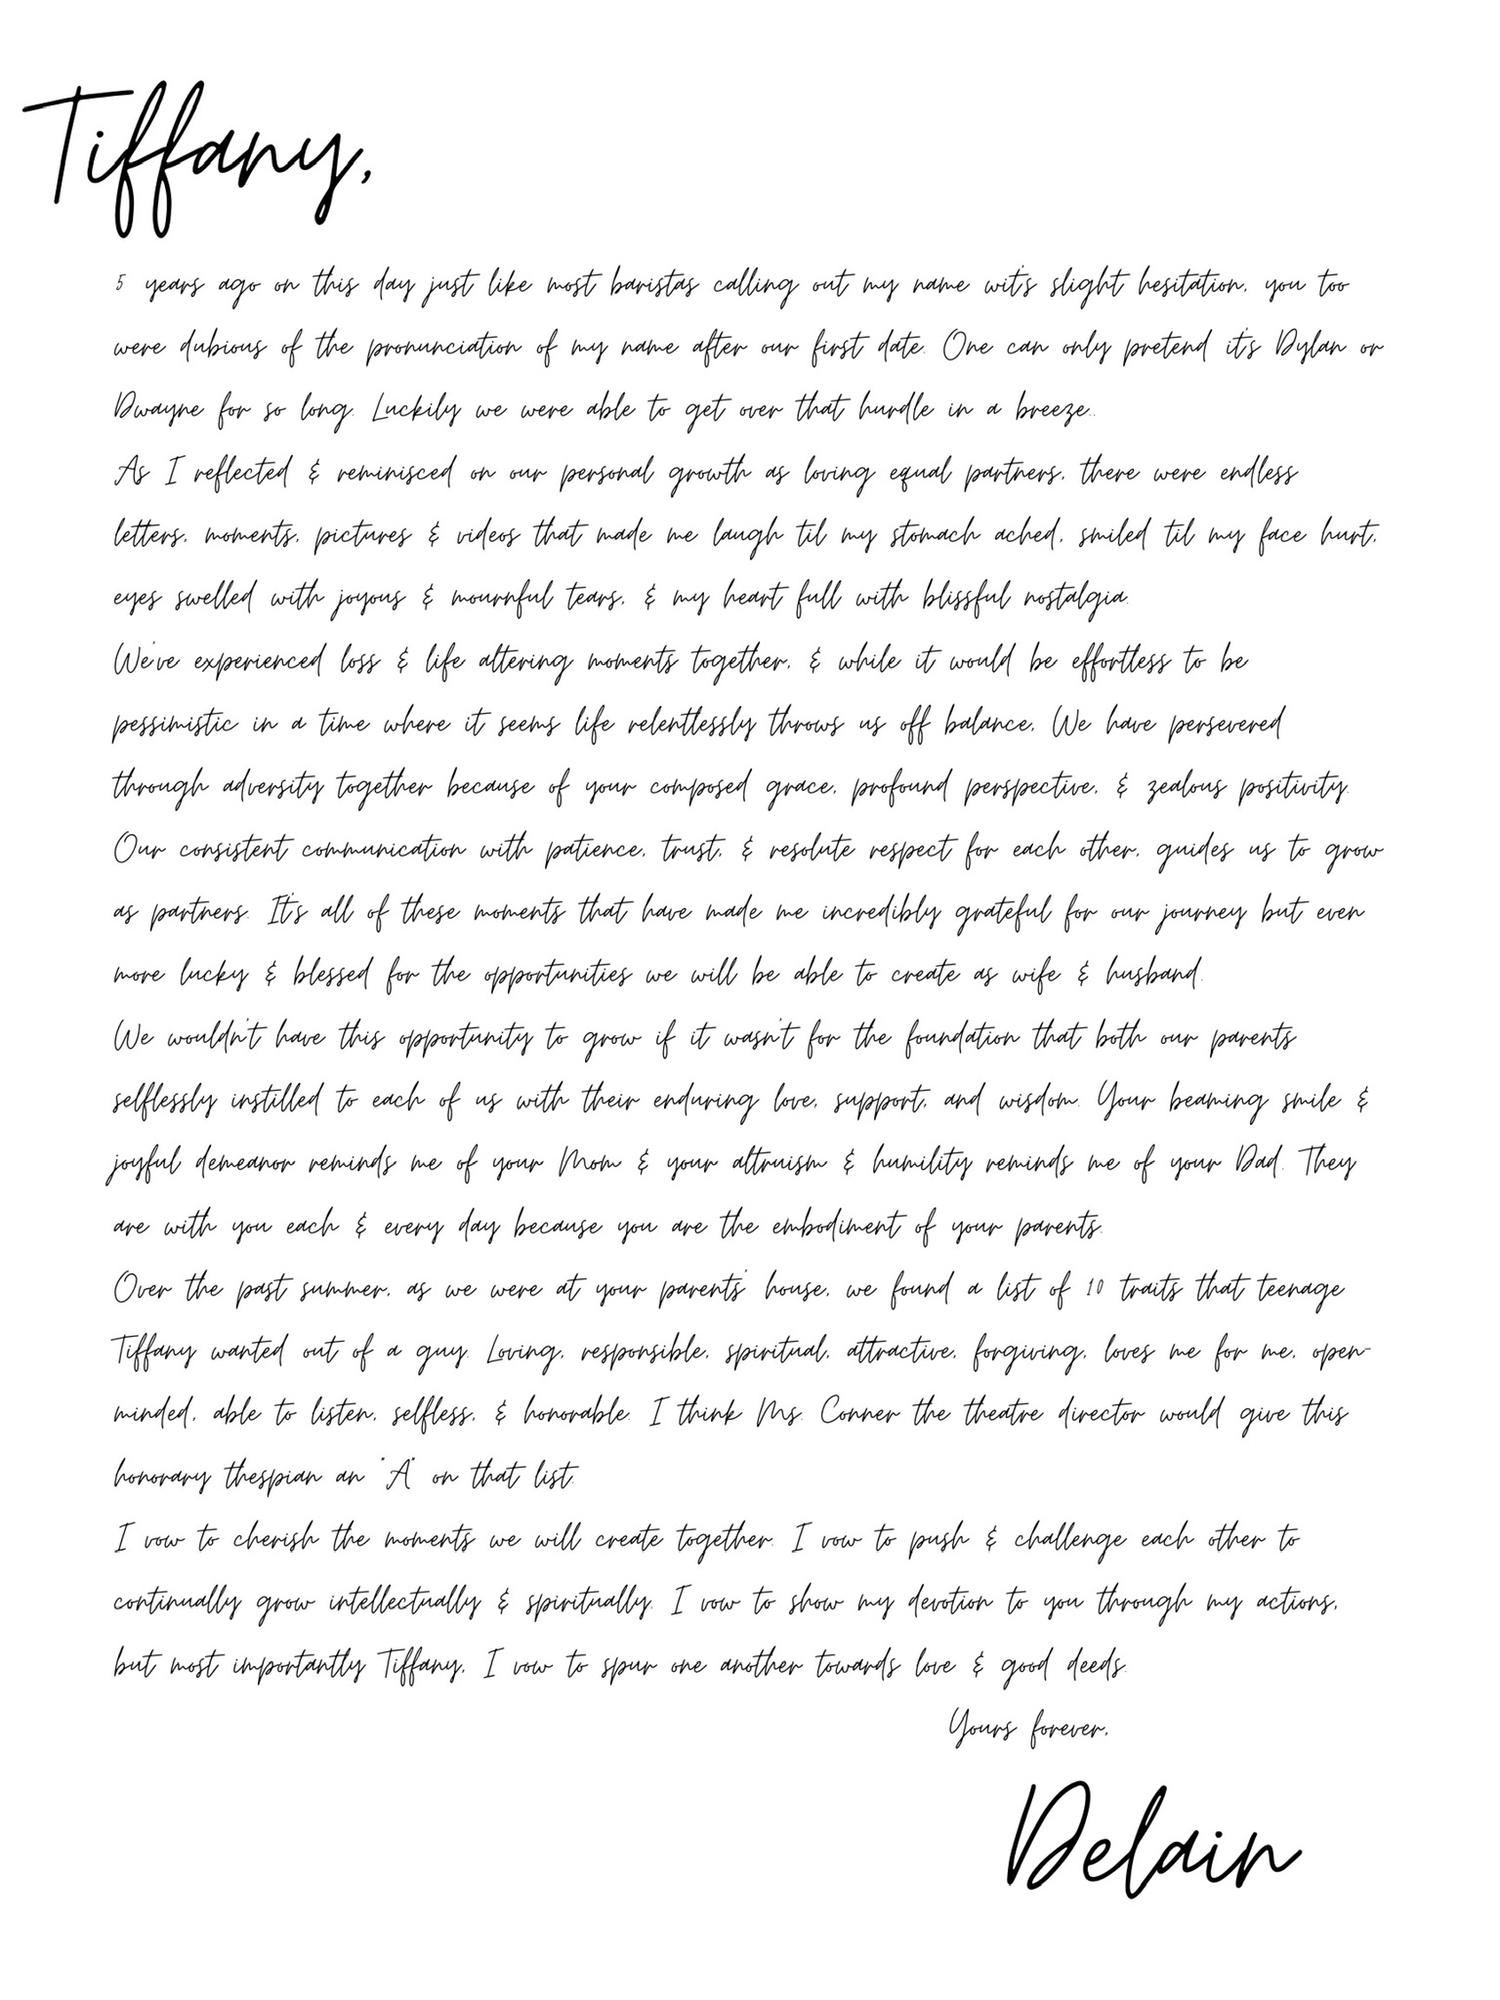 Tiffany,
5 years ago on this day just like most baristas calling out my name wit's slight hesitation, you too
were dubious of the pronunciation of my name after our first date. One can only pretend it's Dylan or
Dwayne for so long. Luckily we were able to get over that hurdle in a breeze..
As I reflected & reminisced on our personal growth as loving equal partners, there were endless
letters, moments, pictures & videos that made me laugh til my stomach ached, smiled til my face hurt,
eyes swelled with joyous & mournful tears, & my heart full with blissful nostalgia.
We've experienced loss & life altering moments together, & while it would be effortless to be
pessimistic in a time where it seems life relentlessly throws us off balance, We have persevered
through adversity together because of your composed grace, profound perspective, & zealous positivity.
Our consistent communication with patience, trust, & resolute respect for each other, guides us to grow
as partners. It's all of these moments that have made me incredibly grateful for our journey but even
more lucky & blessed for the opportunities we will be able to create as wife & husband.
We wouldn't have this opportunity to grow if it wasn't for the foundation that both our parents
selflessly instilled to each of us with their enduring love, support, and wisdom. Your beaming smile &
joyful demeanor reminds me of your Mom & your altruism & humility reminds me of your Dad. They
are with you each & every day because you are the embodiment of your parents.
Over the past summer, as we were at your parents' house, we found a list of 10 traits that teenage
Tiffany wanted out of a guy. Loving, responsible, spiritual, attractive, forgiving, loves me for me, open-
minded, able to listen, selfless, & honorable. I think Ms. Conner the theatre director would give this
honorary thespian an "A" on that list.
I vow to cherish the moments we will create together. I vow to push & challenge each other to
continually grow intellectually & spiritually. I vow to show my devotion to you through my actions,
but most importantly Tiffany, I vow to spur one another towards love & good deeds.
Yours forever,
Delain